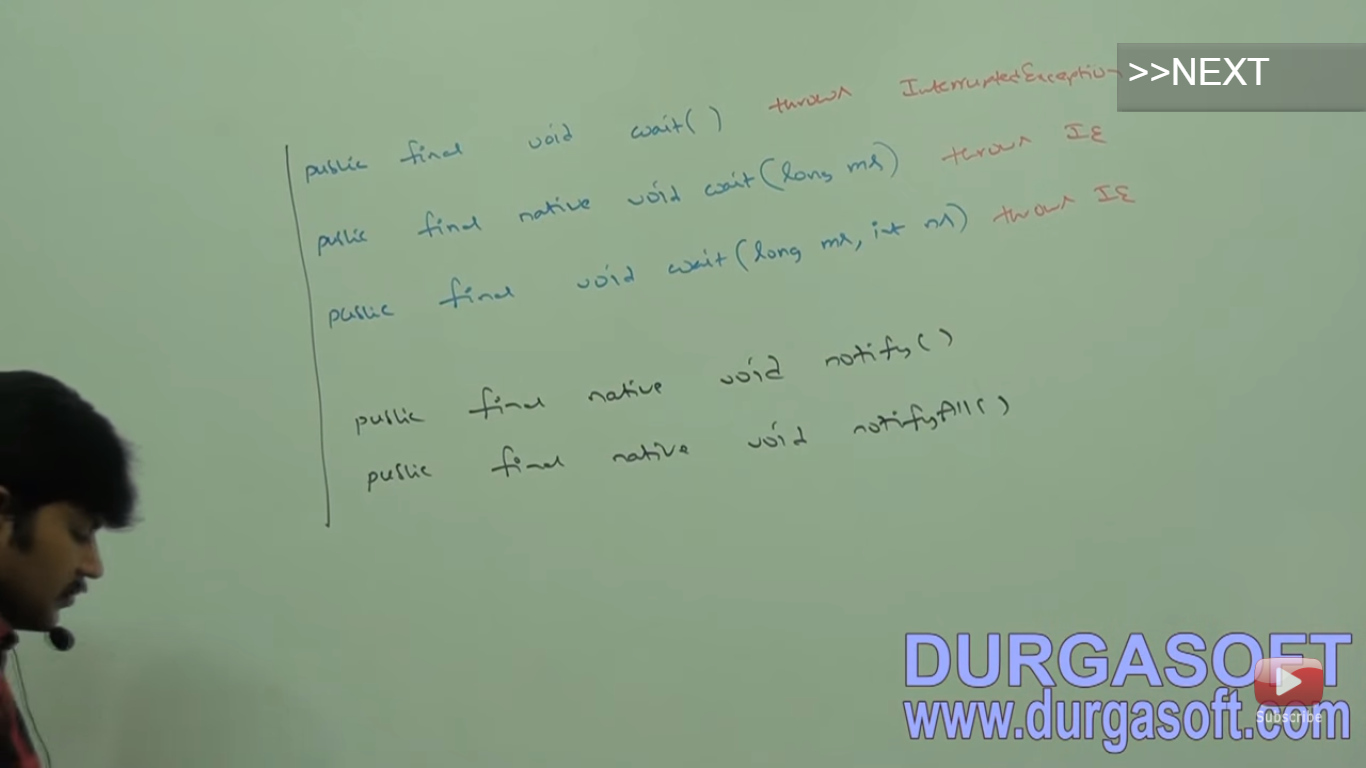 >>NEXT
public final void wait() throws InterruptedException
public final native void wait(long ms) throws IE
public final void wait(long ms, int ns) throws IE
public final native void notify()
public final native void notifyAll()
DURGASOFT
www.durgasoft.com
Subscribe